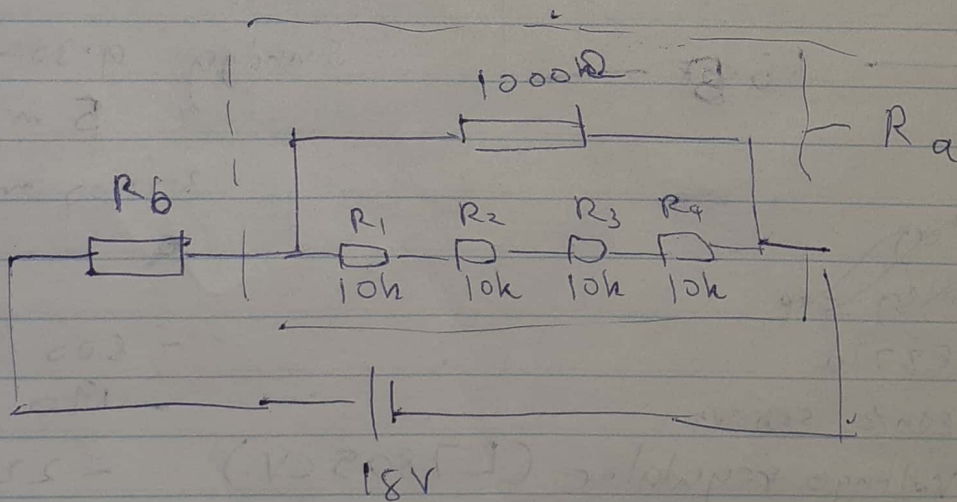 1000kΩ
Ra
Rb
R1 R2 R3 R4
10k 10k 10k 10k
18V